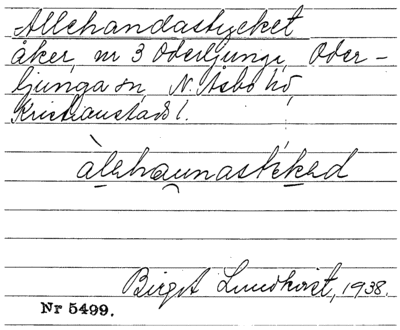 Allehandastycket
åker, nr 3 Oderljunga, Oder-
ljunga sn, N. Åsbo hd,
Kristianstads l.
àlehaunastéked
Birgit Lundkvist, 1938.
Nr 5499.